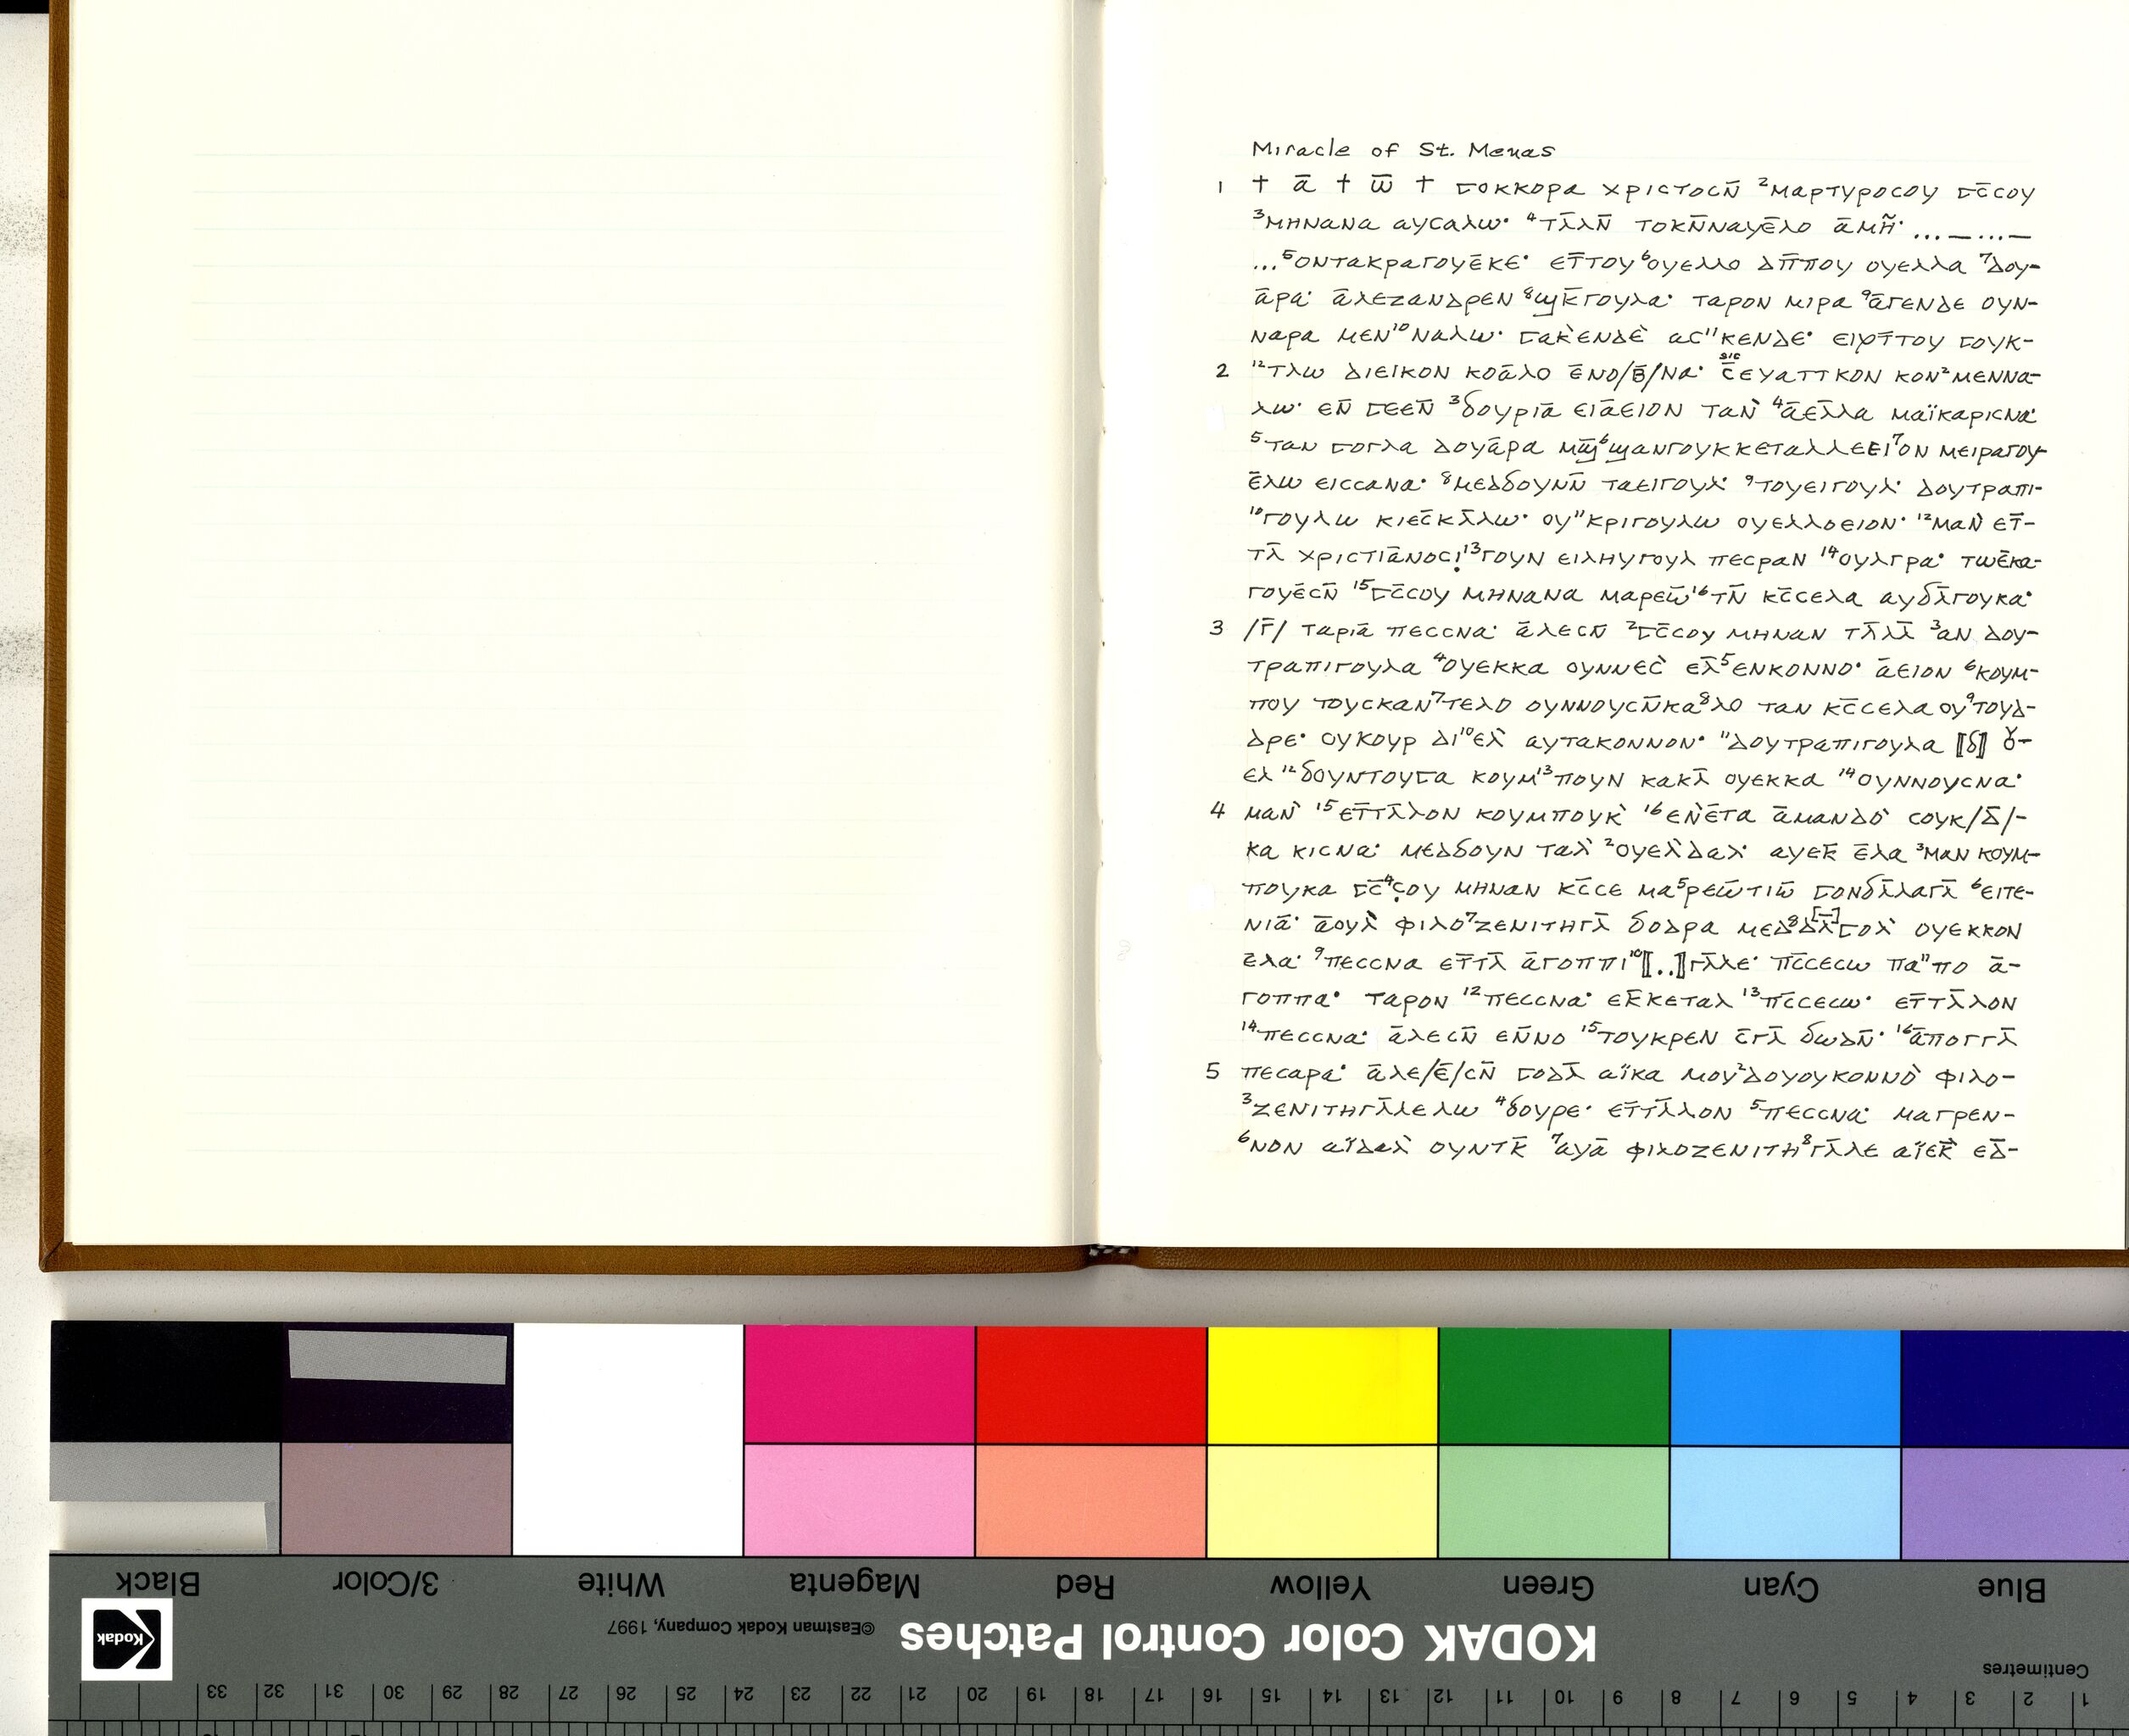 Miracle of St. Menas
1 † ⲁ̄ † ⲱ̄ † ⳟⲟⲕⲕⲟⲣⲁ ⲭⲣⲓⲥⲧⲟⲥⲛ̄ ²ⲙⲁⲣⲧⲩⲣⲟⲥⲟⲩ ⳟⲥ̄ⲥⲟⲩ
³ⲙⲏⲛⲁⲛⲁ ⲁⲩⲥⲁⲗⲱ· ⁴ⲧⲗ̄ⲗⲛ̄ ⲧⲟⲕⲛ̄ⲛⲁⲩⲉ̄ⲗⲟ ⲁ̄ⲙⲏ̃· ...—...—
...⁵ⲟⲛⲧⲁⲕⲣⲁⲅⲟⲩⲉ̄ⲕⲉ· ⲉⲧ̄ⲧⲟⲩ ⁶ⲟⲩⲉⲗⲗⲟ ⲇⲡ̄ⲡⲟⲩ ⲟⲩⲉⲗⲗⲁ ⁷ⲇⲟⲩ-
ⲁ̄ⲣⲁ· ⲁ̄ⲗⲉⲝⲁⲛⲇⲣⲉⲛ ⁸ϣⲕ̄ⲅⲟⲩⲗⲁ· ⲧⲁⲣⲟⲛ ⲙⲓⲣⲁ ⁹ⲁ̄ⲅⲉⲛⲇⲉ ⲟⲩⲛ-
ⲛⲁⲣⲁ ⲙⲉⲛ¹⁰ⲛⲁⲗⲱ· ⳟⲁⲕ̀ⲉⲛⲇⲉ̀ ⲁⲥ¹¹ⲕⲉⲛⲇⲉ· ⲉⲓⲣⲧ̄ⲧⲟⲩ ⳟⲟⲩⲕ-
2 ¹²ⲧⲗⲱ ⲇⲓⲉⲓⲕⲟⲛ ⲕⲟⲁ̄ⲗⲟ ⲉ̄ⲛⲟ/ⲃ̄/ⲛⲁ· ⲥ̄ⲉⲩⲁⲧⲧⲕⲟⲛ ⲕⲟⲛ²ⲙⲉⲛⲛⲁ-
sic
ⲗⲱ· ⲉⲛ̄ ⳟⲉⲉⲛ̄ ³ϭⲟⲩⲣⲓⲁ̄ ⲉⲓⲁ̄ⲉⲓⲟⲛ ⲧⲁⲛ̀ ⁴ⲁ̄ⲉⲗ̄ⲗⲁ ⲙⲁⲓ̈ⲕⲁⲣⲓⲥⲛⲁ·
⁵ⲧⲁⲛ ⳟⲟⲅⲗⲁ ⲇⲟⲩⲁ̄ⲣⲁ ⲙⲁϣ̄⁶ϣⲁⲛⲅⲟⲩⲕⲕⲉⲧⲁⲗⲗⲉⲉⲓ⁷ⲟⲛ ⲙⲉⲓⲣⲁⲅⲟⲩ-
ⲉ̄ⲗⲱ ⲉⲓⲥⲥⲁⲛⲁ· ⁸ⲙⲉⲇϭⲟⲩⲛⲛ̄ ⲧⲁⲉⲓⲅⲟⲩⲗ̀· ⁹ⲧⲟⲩⲉⲓⲅⲟⲩⲗ̀· ⲇⲟⲩⲧⲣⲁⲡⲓ-
¹⁰ⲅⲟⲩⲗⲱ ⲕⲓⲉⲥ̄ⲕⲗ̄ⲗⲱ· ⲟⲩ¹¹ⲕⲣⲓⲅⲟⲩⲗⲱ ⲟⲩⲉⲗⲗⲟⲉⲓⲟⲛ· ¹²ⲙⲁⲛ̀ ⲉⲧ̄-
ⲧⲗ̄ ⲭⲣⲓⲥⲧⲓⲁ̄ⲛⲟⲥⲓ̣¹³ⲅⲟⲩⲛ ⲉⲓⲗⲏⲩⲅⲟⲩⲗ ⲡⲉⲥⲣⲁⲛ ¹⁴ⲟⲩⲗⲅⲣⲁ· ⲧⲱⲉ̄ⲕⲁ-
ⲅⲟⲩⲉ̄ⲥⲛ̄ ¹⁵ⳟⲥ̄ⲥⲟⲩ ⲙⲏⲛⲁⲛⲁ ⲙⲁⲣⲉⲱ̄¹⁶ⲧⲛ̄ ⲕⲥ̄ⲥⲉⲗⲁ ⲁⲩϭⲗ̄ⲅⲟⲩⲕⲁ·
3 /ⲅ̄/ ⲧⲁⲣⲓⲁ̄ ⲡⲉⲥⲥⲛⲁ· ⲁ̄ⲗⲉⲥⲛ̄ ²ⳟⲥ̄ⲥⲟⲩ ⲙⲏⲛⲁⲛ ⲧⲗ̄ⲗⲗ̄ ³ⲁⲛ ⲇⲟⲩ-
ⲧⲣⲁⲡⲓⲅⲟⲩⲗⲁ ⁴ⲟⲩⲉⲕⲕⲁ ⲟⲩⲛⲛⲉⲥ̀ ⲉⲗ̄⁵ⲉⲛⲕⲟⲛⲛⲟ· ⲁ̄ⲉⲓⲟⲛ ⁶ⲕⲟⲩⲙ-
ⲡⲟⲩ ⲧⲟⲩⲥⲕⲁⲛ⁷ⲧⲉⲗⲟ ⲟⲩⲛⲛⲟⲩⲥⲛ̄ⲕⲁ⁸ⲗⲟ ⲧⲁⲛ ⲕⲥ̄ⲥⲉⲗⲁ ⲟⲩ⁹ⲧⲟⲩⲇ-
ⲇⲣⲉ· ⲟⲩⲕⲟⲩⲣ ⲇⲓ¹⁰ⲉⲗ̀ ⲁⲩⲧⲁⲕⲟⲛⲛⲟⲛ· ¹¹ⲇⲟⲩⲧⲣⲁⲡⲓⲅⲟⲩⲗⲁ ⟦ϭ⟧ ȣ-
ⲉⲗ ¹²ϭⲟⲩⲛⲧⲟⲩⳟⲁ ⲕⲟⲩⲙ¹³ⲡⲟⲩⲛ ⲕⲁⲕⲗ̄ ⲟⲩⲉⲕⲕⲁ ¹⁴ⲟⲩⲛⲛⲟⲩⲥⲛⲁ·
4 ⲙⲁⲛ̀ ¹⁵ⲉⲧ̄ⲧⲗ̄ⲗⲟⲛ ⲕⲟⲩⲙⲡⲟⲩⲕ̀ ¹⁶ⲉⲛ̀ⲉ̄ⲧⲁ ⲁ̄ⲙⲁⲛⲇⲟ̀ ⲥⲟⲩⲕ/ⲇ̄/-
ⲕⲁ ⲕⲓⲥⲛⲁ· ⲙⲉⲇϭⲟⲩⲛ ⲧⲁⲗ̀ ²ⲟⲩⲉⲗ̀ⲇⲁⲗ̀· ⲁⲩⲉⲕ̄ ⲉ̄ⲗⲁ ³ⲙⲁⲛ ⲕⲟⲩⲙ-
ⲡⲟⲩⲕⲁ ⳟⲥ̄⁴ⲥ̣ⲟⲩ ⲙⲏⲛⲁⲛ ⲕⲥ̄ⲥⲉ ⲙⲁ⁵ⲣⲉⲱ̄ⲧⲓⲱ̄ ⳟⲟⲛϭⲗ̄ⲗⲁⲅⲗ̄ ⁶ⲉⲓⲧⲉ-
ⲛⲓⲁ̄· ⲁ̄ⲟⲩⲗ̀ ⲫⲓⲗⲟ⁷ⲝⲉⲛⲓⲧⲏⲅⲗ̄ ϭⲟⲇⲣⲁ ⲙⲉⲇ⁸ⲇⲗ̄[–]ⳟⲟⲗ̀ ⲟⲩⲉⲕⲕⲟⲛ
ⲉ̄ⲗⲁ· ⁹ⲡⲉⲥⲥⲛⲁ ⲉⲧ̄ⲧⲗ̄ ⲁ̄ⲅⲟⲡⲡⲓ¹⁰⟦..⟧ⲅⲗ̄ⲗⲉ· ⲡⲥ̄ⲥⲉⲥⲱ ⲡⲁ¹¹ⲡⲟ ⲁ̄-
ⲅⲟⲡⲡⲁ· ⲧⲁⲣⲟⲛ ¹²ⲡⲉⲥⲥⲛⲁ· ⲉⲕ̄ⲕⲉⲧⲁⲗ ¹³ⲡⲥ̄ⲥⲉⲥⲱ· ⲉⲧ̄ⲧⲗ̄ⲗⲟⲛ
¹⁴ⲡⲉⲥⲥⲛⲁ· ⲁ̄ⲗⲉⲥⲛ̄ ⲉⲛ̄ⲛⲟ ¹⁵ⲧⲟⲩⲕⲣⲉⲛ ⲥ̄ⲅⲗ̄ ϭⲱⲇⲛ̄· ¹⁶ⲁ̄ⲡⲟⲅⲅⲗ̄
5 ⲡⲉⲥⲁⲣⲁ· ⲁ̄ⲗⲉ/ⲉ̄/ⲥⲛ̄ ⳟⲟⲇⲗ̄ ⲁⲓ̈ⲕⲁ ⲙⲟⲩ²ⲇⲟⲩⲟⲩⲕⲟⲛⲛⲟ̀ ⲫⲓⲗⲟ-
³ⲝⲉⲛⲓⲧⲏⲅⲗ̄ⲗⲉⲗⲱ ⁴ϭⲟⲩⲣⲉ· ⲉⲧ̄ⲧⲗ̄ⲗⲟⲛ ⁵ⲡⲉⲥⲥⲛⲁ· ⲙⲁⲅⲣⲉⲛ-
⁶ⲛⲟⲛ ⲁⲓ̈ⲇⲁⲗ̀ ⲟⲩⲛⲧⲕ̄ ⁷ⲁⲩⲁ̄ ⲫⲓⲗⲟⲝⲉⲛⲓⲧⲏ⁸ⲅⲗ̄ⲗⲉ ⲁⲓ̈ⲉⲕ̄ ⲉⲇ̄-
Black 3/Color White Magenta Red Yellow Green Cyan Blue
Kodak
©Eastman Kodak Company, 1997 KODAK Color Control Patches
Centimetres
33 32 31 30 29 28 27 26 25 24 23 22 21 20 19 18 17 16 15 14 13 12 11 10 9 8 7 6 5 4 3 2 1